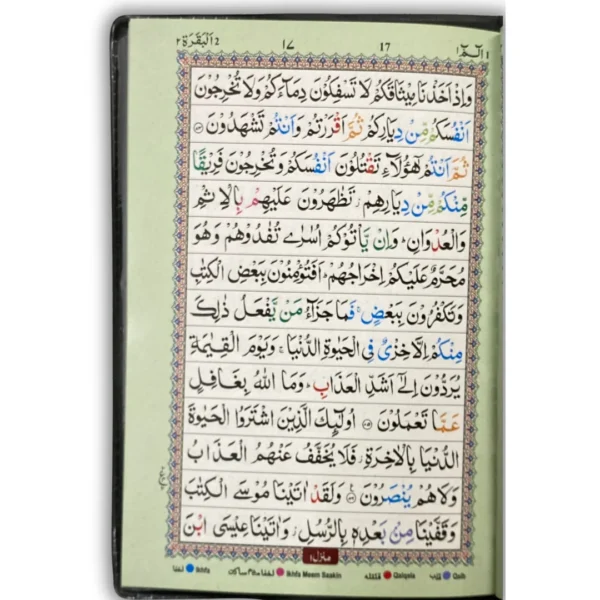 البقرة ٢ 2 ١٧ 17 الٓمّٓ ١ 1
وَاِذْ اَخَذْنَا مِيْثَاقَكُمْ لَا تَسْفِكُوْنَ دِمَآءَكُمْ وَلَا تُخْرِجُوْنَ
اَنْفُسَكُمْ مِّنْ دِيَارِكُمْ ثُمَّ اَقْرَرْتُمْ وَاَنْتُمْ تَشْهَدُوْنَ ۝۸۴
ثُمَّ اَنْتُمْ هٰٓؤُلَآءِ تَقْتُلُوْنَ اَنْفُسَكُمْ وَتُخْرِجُوْنَ فَرِيْقًا
مِّنْكُمْ مِّنْ دِيَارِهِمْ ز تَظٰهَرُوْنَ عَلَيْهِمْ بِالْاِثْمِ
وَالْعُدْوَانِ ؕ وَاِنْ يَّاْتُوْكُمْ اُسٰرٰى تُفٰدُوْهُمْ وَهُوَ
مُحَرَّمٌ عَلَيْكُمْ اِخْرَاجُهُمْ ؕ اَفَتُؤْمِنُوْنَ بِبَعْضِ الْكِتٰبِ
وَتَكْفُرُوْنَ بِبَعْضٍ ۚ فَمَا جَزَآءُ مَنْ يَّفْعَلُ ذٰلِكَ
مِنْكُمْ اِلَّا خِزْىٌ فِى الْحَيٰوةِ الدُّنْيَا ۚ وَيَوْمَ الْقِيٰمَةِ
يُرَدُّوْنَ اِلٰٓى اَشَدِّ الْعَذَابِ ؕ وَمَا اللّٰهُ بِغَافِلٍ
عَمَّا تَعْمَلُوْنَ ۝۸۵ اُولٰٓئِكَ الَّذِيْنَ اشْتَرَوُا الْحَيٰوةَ
الدُّنْيَا بِالْاٰخِرَةِ ز فَلَا يُخَفَّفُ عَنْهُمُ الْعَذَابُ
وَلَا هُمْ يُنْصَرُوْنَ ۝۸۶ وَلَقَدْ اٰتَيْنَا مُوْسَى الْكِتٰبَ
وَقَفَّيْنَا مِنْۢ بَعْدِهٖ بِالرُّسُلِ ز وَاٰتَيْنَا عِيْسَى ابْنَ
منزل ١
اخفا Ikhfa اخفا میم ساکن Ikhfa Meem Saakin قلقلہ Qalqala قلب Qalb